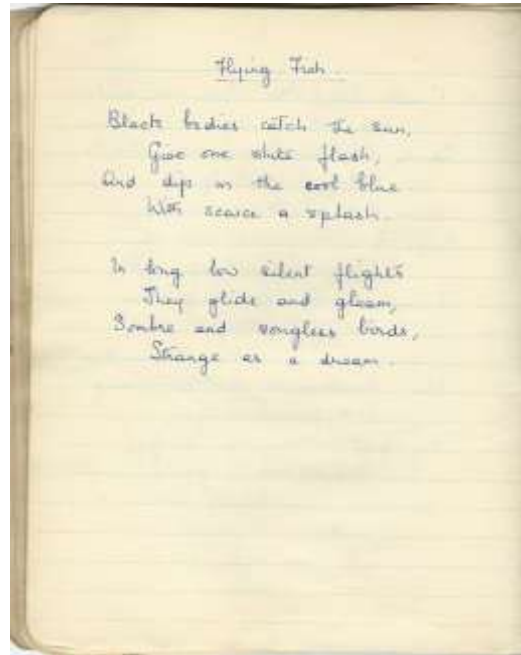 Flying Fish
Black bodies catch the sun,
Give one white flash,
And dip in the cool blue
With scarce a splash.
In long low silent flights
They glide and gleam,
Sombre and songless birds,
Strange as a dream.